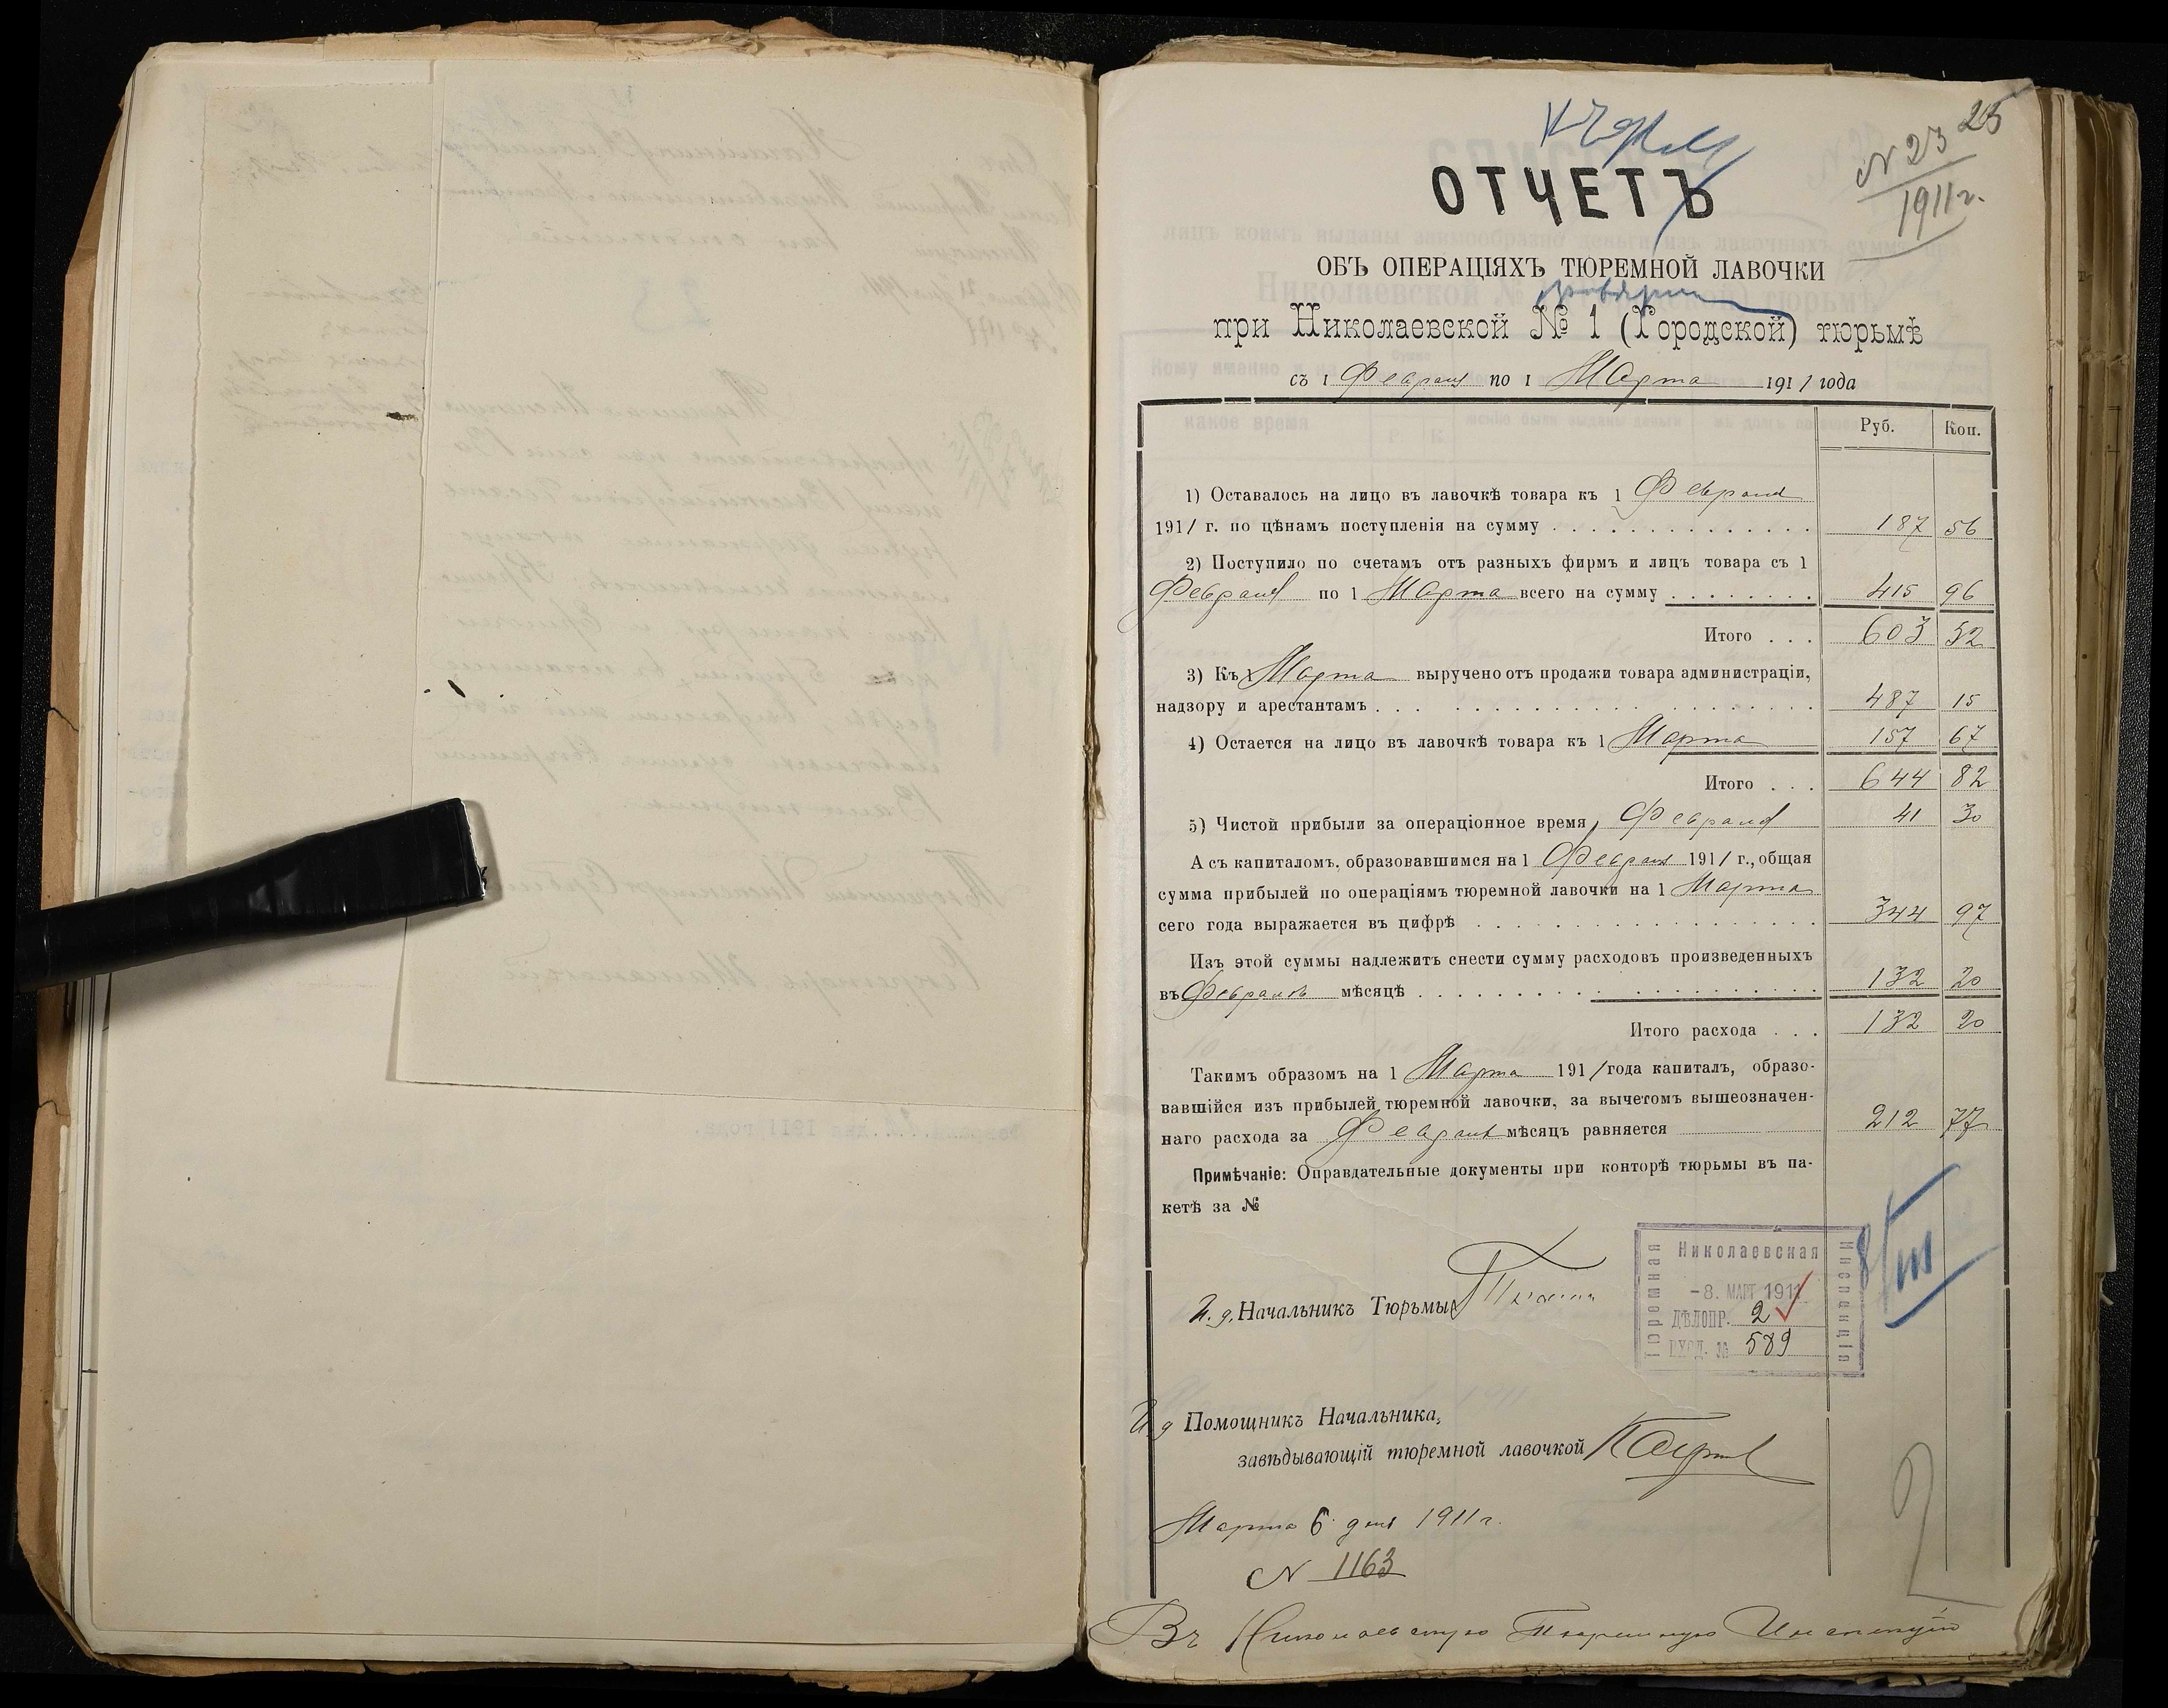 25
N 23
1911 г.
ОТЧЕТЪ
ОБЪ ОПЕРАЦІЯХЪ ТЮРЕМНОЙ ЛАВОЧКИ
при Николаевской № 1 (Городской) тюрьмѣ
съ 1 Февраля по 1 Марта 1911 года
Руб. Коп.
1) Оставалось на лицо въ лавочкѣ товара къ 1 Февраля
1911 г. по цѣнамъ поступленія на сумму . . . 187 56
2) Поступило по счетамъ отъ разныхъ фирмъ и лицъ товара съ 1
Февраля по 1 Марта всего на сумму . . . 415 96
Итого . . . 603 52
3) Къ 1 Марта выручено отъ продажи товара администраціи,
надзору и арестантамъ . . . 487 15
4) Остается на лицо въ лавочкѣ товара къ 1 Марта 157 67
Итого . . . 644 82
5) Чистой прибыли за операціонное время, Февраля 41 30
А съ капиталомъ, образовавшимся на 1 Февраля 1911 г., общая
сумма прибылей по операціямъ тюремной лавочки на 1 Марта
сего года выражается въ цифрѣ . . . 344 97
Изъ этой суммы надлежитъ снести сумму расходовъ произведенныхъ
въ Февралѣ мѣсяцѣ . . . 132 20
Итого расхода . . . 132 20
Такимъ образомъ на 1 Марта 1911 года капиталъ, образо-
вавшійся изъ прибылей тюремной лавочки, за вычетомъ вышеозначен-
наго расхода за Февраль мѣсяцъ равняется 212 77
Примѣчаніе: Оправдательные документы при конторѣ тюрьмы въ па-
кетѣ за №
И. д. Начальникъ Тюрьмы
Николаевская
Тюремная
Инспекція
-8. МАРТ 1911
ДѢЛОПР. 2
ВХОД. № 589
8/III
И д Помощникъ Начальника,
завѣдывающій тюремной лавочкой
Марта 6 дня 1911 г.
N 1163
Въ Николаевскую Тюремную Инспекцію